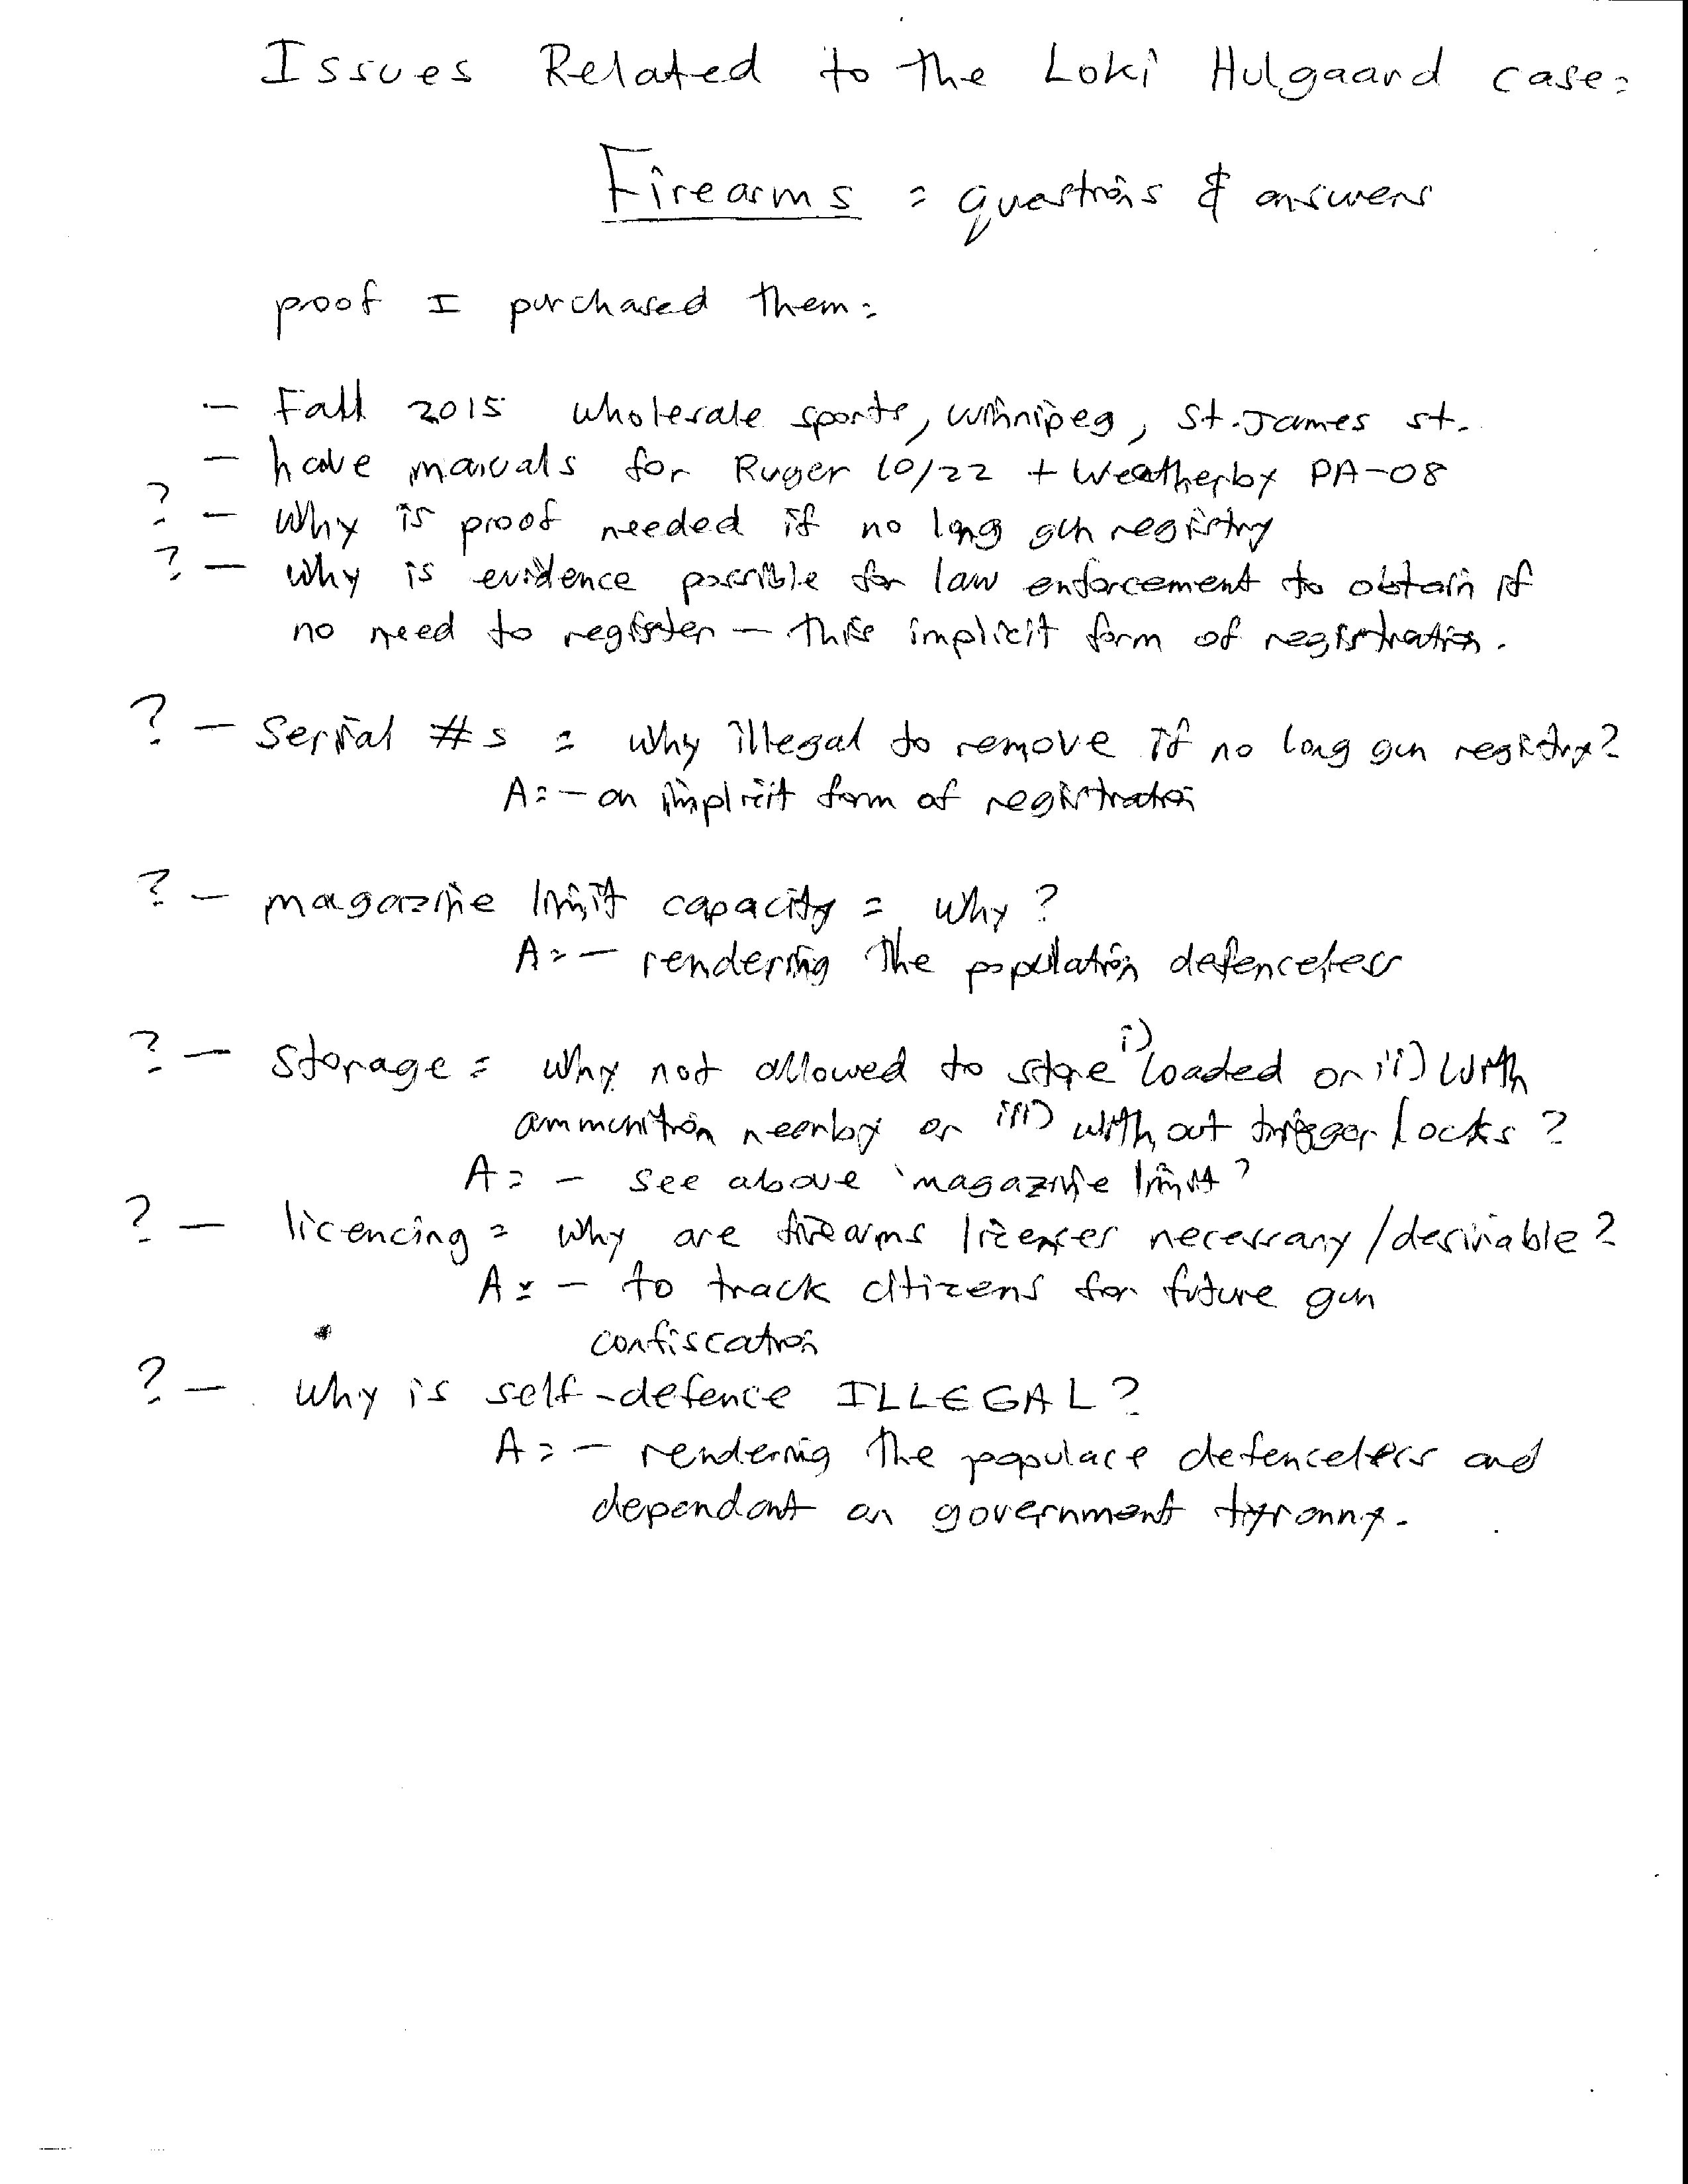 Issues Related to the Loki Hulgaard case:
Firearms : questions & answers
proof I purchased them:
- Fall 2015 wholesale sports, Winnipeg, St. James st.
- have manuals for Ruger 10/22 + Weatherby PA-08
? - Why is proof needed if no long gun registry
? - why is evidence possible for law enforcement to obtain if
no need to register - this implicit form of registration.
? - Serial #s : why illegal to remove if no long gun registry?
A: - an implicit form of registration
? - magazine limit capacity : why?
A: - rendering the population defenceless
? - Storage : why not allowed to store i) loaded or ii) with
ammunition nearby or iii) without trigger locks?
A: - see above 'magazine limit'
? - licencing : why are firearms licenses necessary/desirable?
A: - to track citizens for future gun
confiscation
? - why is self-defence ILLEGAL?
A: - rendering the populace defenceless and
dependant on government tyranny.